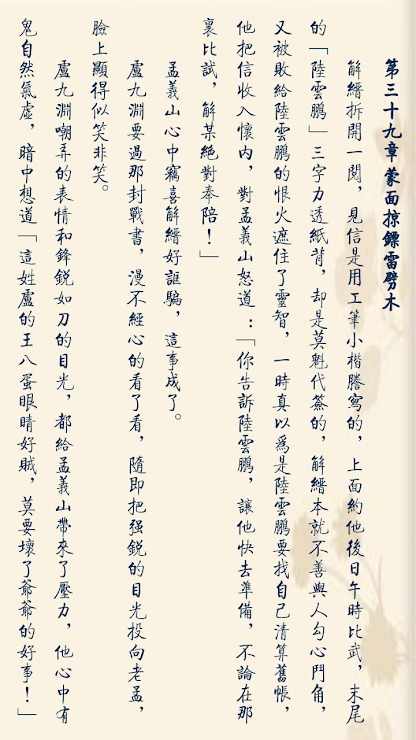 第三十九章 蒙面掠鏢雷劈木
解縉拆開一閱，見信是用工筆小楷謄寫的，上面約他後日午時比武，末尾
的「陸雲鵬」三字力透紙背，却是莫魁代簽的，解縉本就不善與人勾心鬥角，
又被敗給陸雲鵬的恨火遮住了靈智，一時真以爲是陸雲鵬要找自己清算舊帳，
他把信收入懷内，對孟義山怒道：「你告訴陸雲鵬，讓他快去準備，不論在那
裏比試，解某絕對奉陪！」
孟義山心中竊喜解縉好誆騙，這事成了。
盧九淵要過那封戰書，漫不經心的看了看，隨即把强銳的目光投向老孟，
臉上顯得似笑非笑。
盧九淵嘲弄的表情和鋒銳如刀的目光，都給孟義山帶來了壓力，他心中有
鬼自然氣虛，暗中想道「這姓盧的王八蛋眼睛好賊，莫要壞了爺爺的好事！」